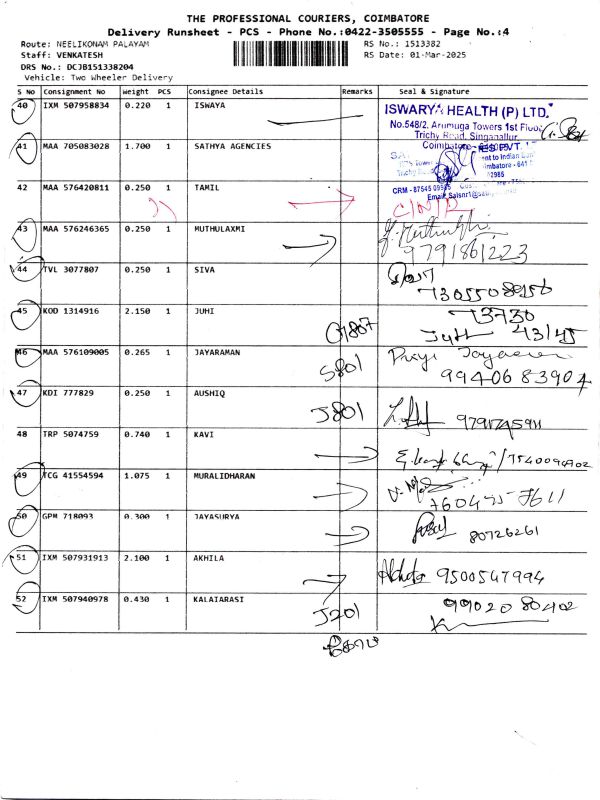 THE PROFESSIONAL COURIERS, COIMBATORE
Delivery Runsheet - PCS - Phone No.:0422-3505555 - Page No.:4
Route: NEELIKONAM PALAYAM RS No.: 1513382
Staff: VENKATESH RS Date: 01-Mar-2025
DRS No.: DCJB151338204
Vehicle: Two Wheeler Delivery
S No Consignment No Weight PCS Consignee Details Remarks Seal & Signature
40 IXM 507958834 0.220 1 ISWAYA
ISWARYA HEALTH (P) LTD.
No.548/2, Arumuga Towers 1st Floor
Trichy Road, Singanallur,
Coimbatore
41 MAA 705083028 1.700 1 SATHYA AGENCIES
42 MAA 576420811 0.250 1 TAMIL
43 MAA 576246365 0.250 1 MUTHULAXMI
9791861223
44 TVL 3077807 0.250 1 SIVA
7305508950
45 KOD 1314916 2.150 1 JUHI
73730
Juhi 43145
46 MAA 576109005 0.265 1 JAYARAMAN S801 Priya Jayaraman
9940683904
47 KDI 777829 0.250 1 AUSHIQ J801 9791745911
48 TRP 5074759 0.740 1 KAVI
49 TCG 41554594 1.075 1 MURALIDHARAN
50 GPM 718093 0.300 1 JAYASURYA 80726261
51 IXM 507931913 2.100 1 AKHILA 9500547994
52 IXM 507940978 0.430 1 KALAIARASI J201 9902080402